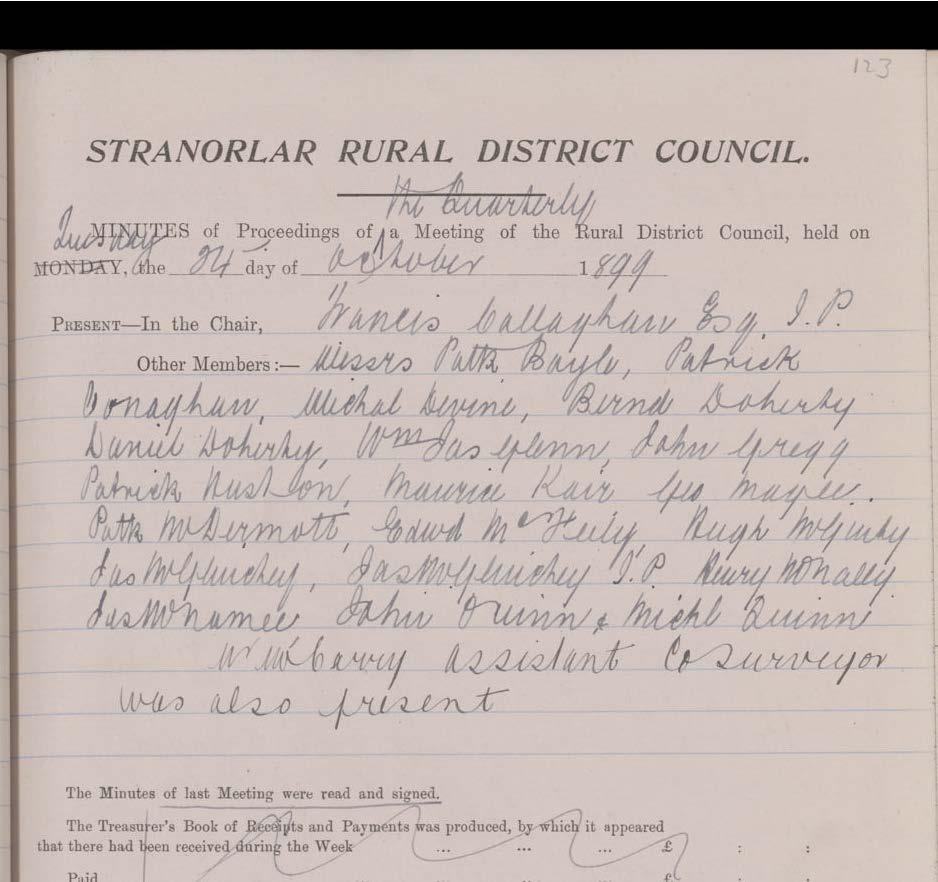 123
STRANORLAR RURAL DISTRICT COUNCIL.
The Quarterly
Tuesday
MINUTES of Proceedings of a Meeting of the Rural District Council, held on
MONDAY, the 24 day of October 1899
PRESENT—In the Chair, Francis Callaghan Esq, J.P.
Other Members:— Messrs Pattk Boyle, Patrick
Conaghan, Michal Devine, Bernd Doherty
Daniel Doherty, Wm Jas Glenn, John Gregg
Patrick Huston, Maurice Kair Geo Magee.
Pattk McDermott, Edwd McFeily, Hugh McGinty
Jas McGlinchey, Jas McGlinchey J.P. Henry McNally
Jas McNamee John Quinn & Michl Quinn
Mr McCarry assistant Co Surveyor
was also present
The Minutes of last Meeting were read and signed.
The Treasurer's Book of Receipts and Payments was produced, by which it appeared
that there had been received during the Week ... ... ... £ : :
Paid £